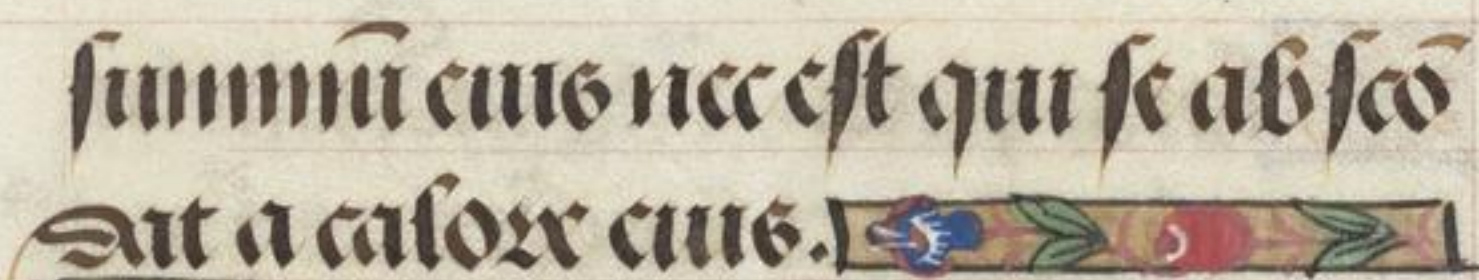 summū eius nec est qui se abscō
dit a calore eius.